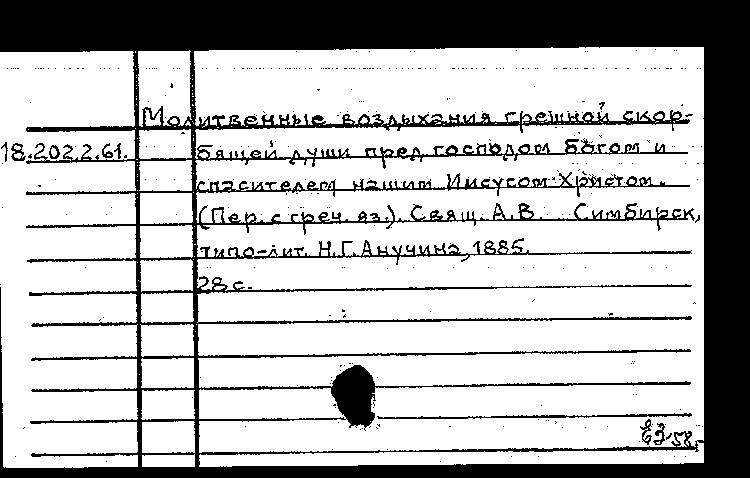 Молитвенные воздыхания грешной скор-
18.202.2.61. бящей души пред господом богом и
спасителем нашим Иисусом Христом.
(Пер. с греч. яз.). Свящ. А.В. Симбирск,
типо-лит. Н.Г.Анучина, 1885.
28 с.